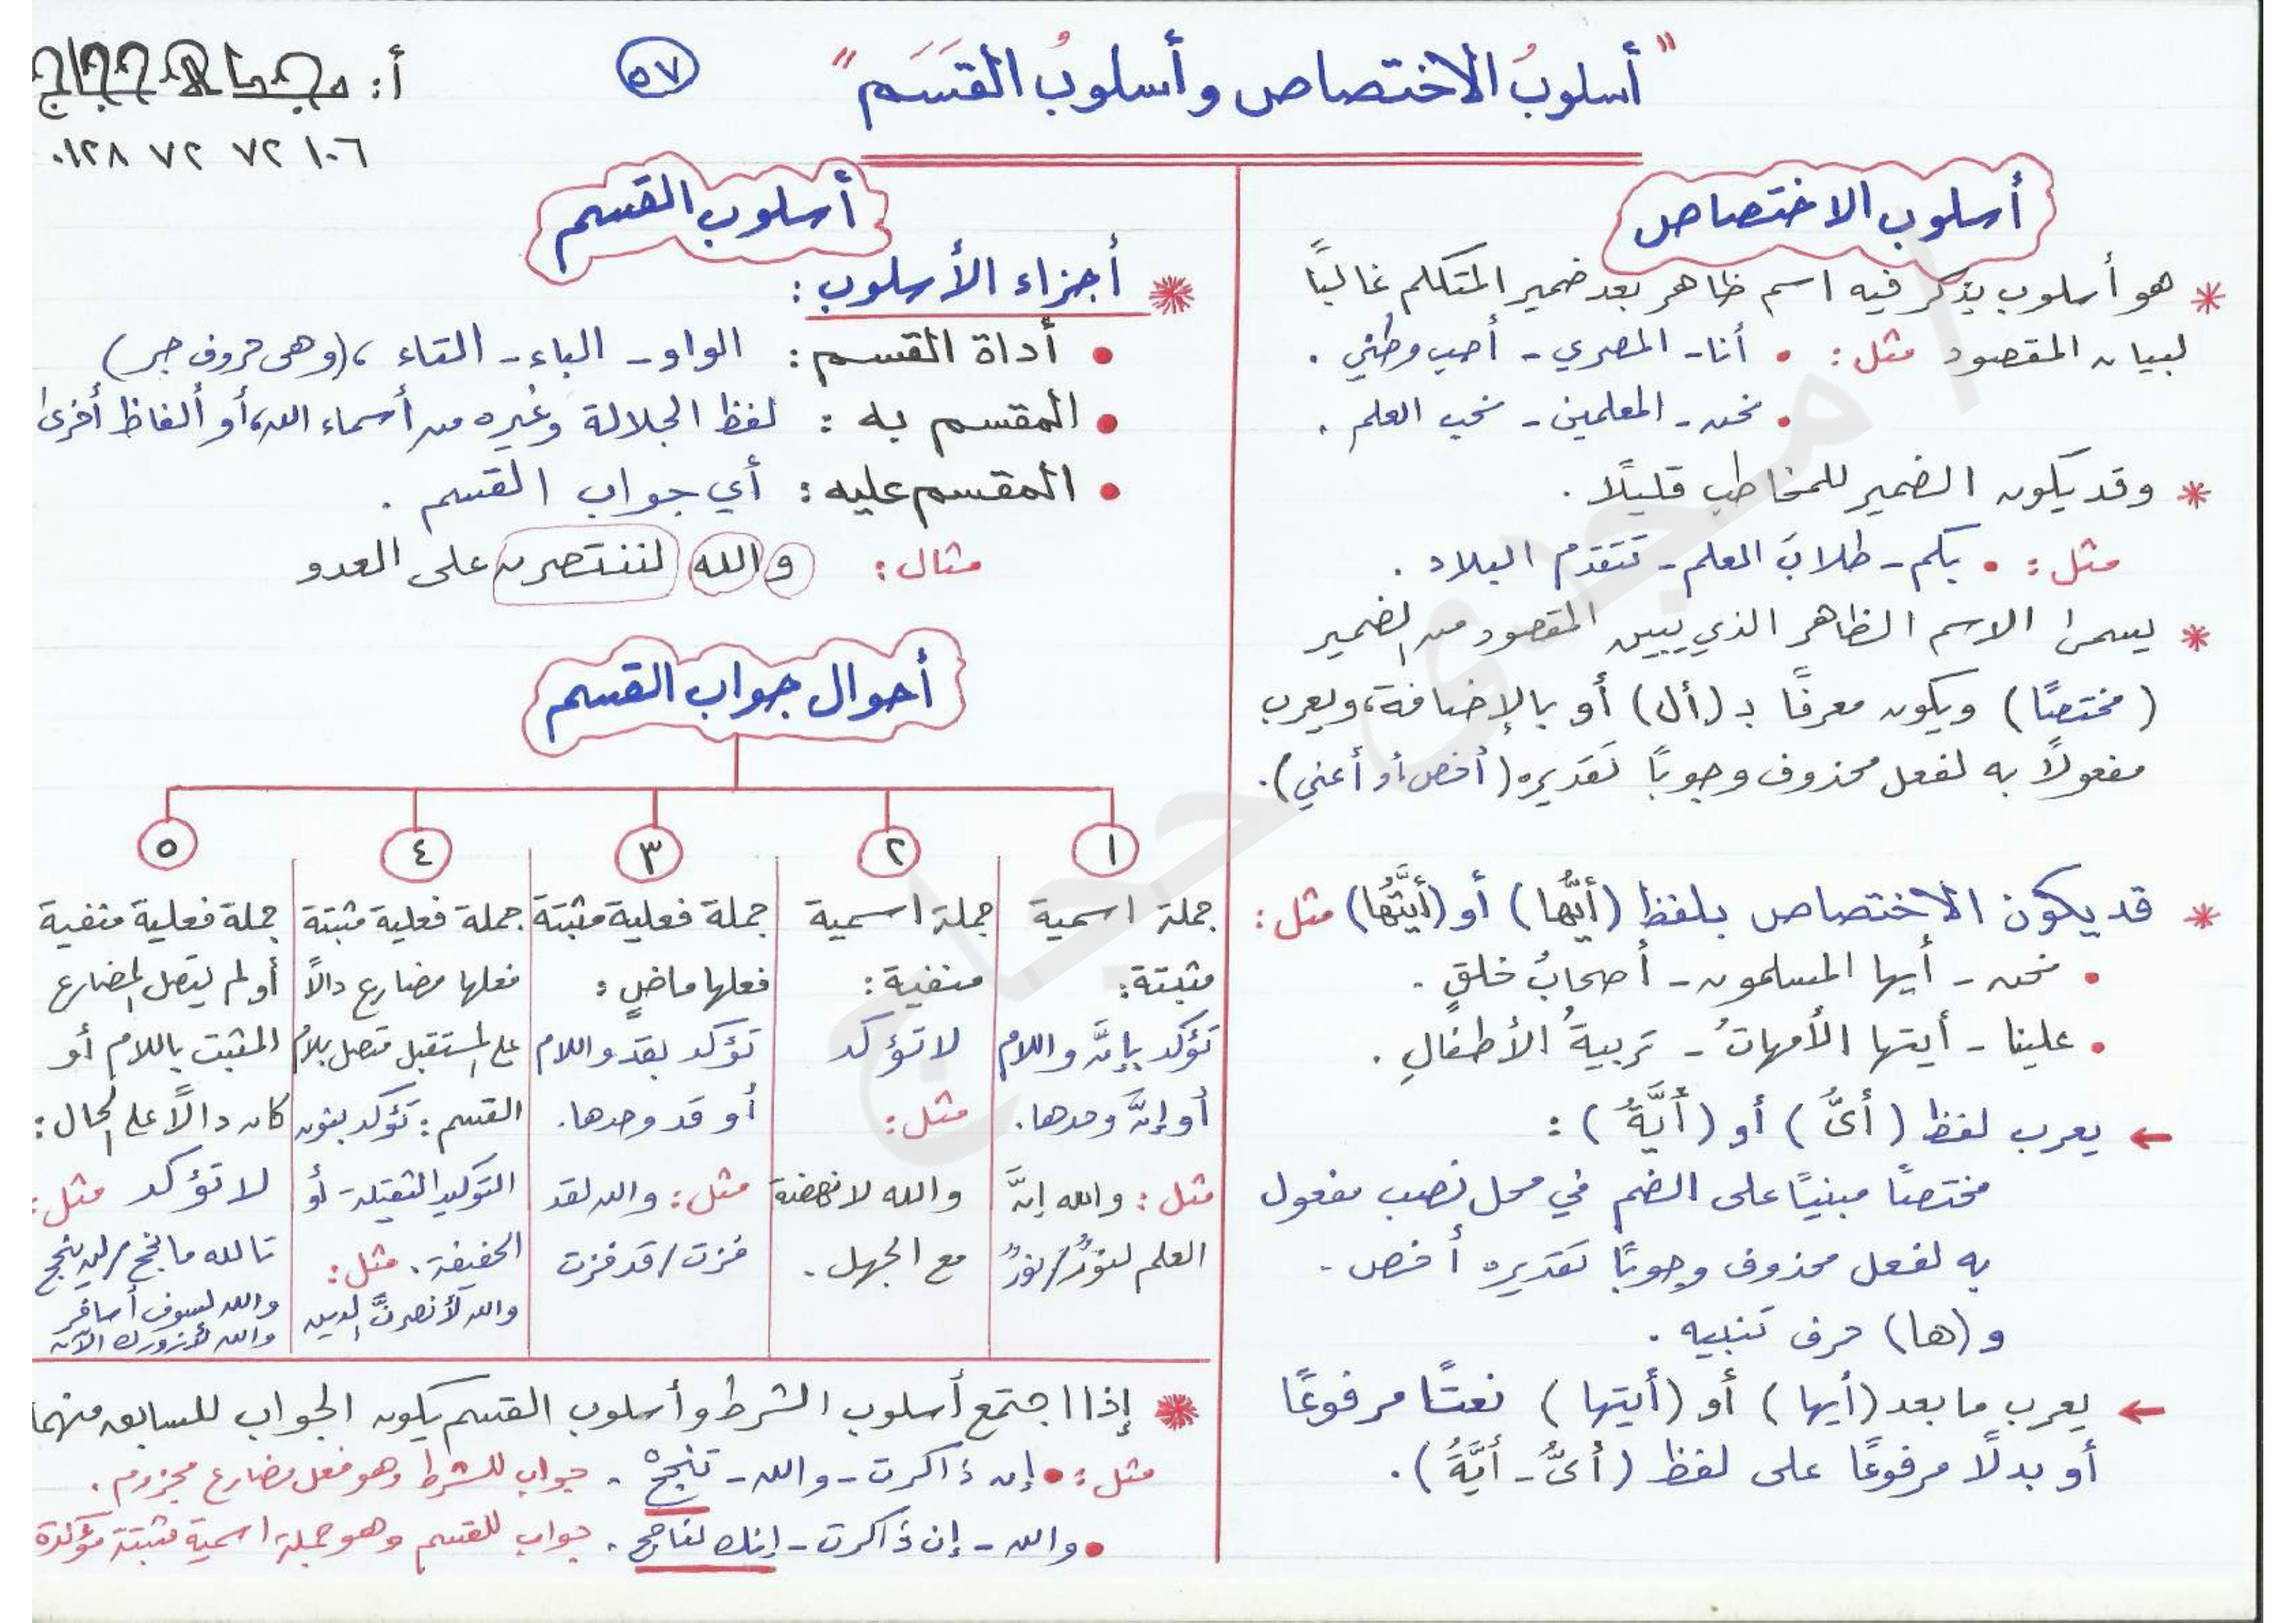 "أسلوبُ الاختصاص وأسلوبُ القَسَم"
٥٧
أ: مجدى حجاج
٠١٢٨ ٧٢ ٧٢ ١٠٦
أسلوب الاختصاص
* هو أسلوب يذكر فيه اسم ظاهر بعد ضمير المتكلم غالبًا
لبيان المقصود مثل: • أنا - المصري - أحب وطني .
• نحن - المعلمين - نحب العلم .
* وقد يكون الضمير للمخاطب قليلًا .
مثل: • بكم - طلابَ العلم - تتقدم البلاد .
* يسمى الاسم الظاهر الذي يبين المقصود من الضمير
(مختصًا) ويكون معرفًا بـ (أل) أو بالإضافة، ويعرب
مفعولًا به لفعل محذوف وجوبًا تقديره (أخص أو أعني).
* قد يكون الاختصاص بلفظ (أيُّها) أو (أيَّتُها) مثل:
• نحن - أيها المسلمون - أصحابُ خلقٍ .
• علينا - أيتها الأمهاتُ - تربيةُ الأطفالِ .
← يعرب لفظ (أىُّ) أو (أيَّةُ) :
مختصًا مبنيًا على الضم في محل نصب مفعول
به لفعل محذوف وجوبًا تقديره أخص .
و (ها) حرف تنبيه .
← يعرب ما بعد (أيها) أو (أيتها) نعتًا مرفوعًا
أو بدلًا مرفوعًا على لفظ (أىُّ - أيَّةُ) .
أسلوب القسم
* أجزاء الأسلوب :
• أداة القسم : الواو - الباء - التاء ، (وهى حروف جر)
• المقسم به : لفظ الجلالة وغيره من أسماء الله، أو ألفاظ أخرى
• المقسم عليه : أي جواب القسم .
مثال: و الله لننتصرن على العدو
أحوال جواب القسم
١
جملة اسمية
مثبتة:
تؤكد بإنَّ واللام
أو إنَّ وحدها.
مثل: والله إنَّ
العلم لنورٌ/نورٌ
٢
جملة اسمية
منفية:
لا تؤكد
مثل:
والله لا نهضة
مع الجهل .
٣
جملة فعلية مثبتة
فعلها ماضٍ :
تؤكد بقد واللام
أو قد وحدها.
مثل: والله لقد
فزت/قد فزت
٤
جملة فعلية مثبتة
فعلها مضارع دالًا
على المستقبل متصل بلام
القسم: تؤكد بنون
التوكيد الثقيلة أو
الخفيفة. مثل:
والله لأنصرنَّ الدين
٥
جملة فعلية منفية
أو لم يتصل المضارع
المثبت باللام أو
كان دالًا على الحال:
لا تؤكد مثل:
تالله ما نجح/لن ينجح
والله لسوف أسافر
والله لأزورك الآن
* إذا اجتمع أسلوب الشرط وأسلوب القسم يكون الجواب للسابق منهما
مثل: • إن ذاكرت - والله - تنجحْ . جواب للشرط وهو فعل مضارع مجزوم .
• والله - إن ذاكرت - إنك لناجح . جواب للقسم وهو جملة اسمية مثبتة مؤكدة